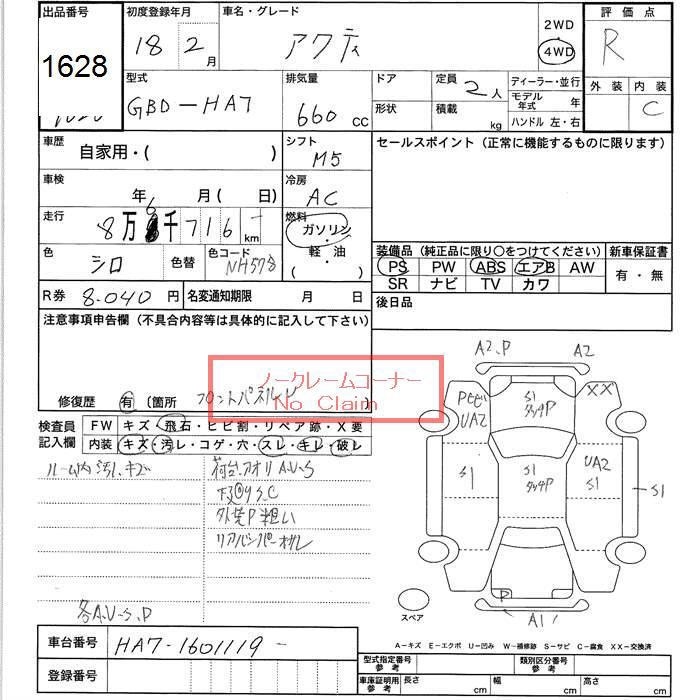 出品番号 初度登録年月 車名・グレード 2WD 評価点
1628 18 2月 アクティ 4WD R
型式 排気量 ドア 定員 2人 ディーラー・並行 外装 内装
GBD-HA7 660cc 形状 積載 kg モデル年式 年 C
ハンドル 左・右
車歴 自家用・( ) シフト M5 セールスポイント (正常に機能するものに限ります)
車検 年 月( 日) 冷房 AC
走行 8万6千716km 燃料 ガソリン・
軽・油
( )
色 シロ 色替 色コード NH578
装備品 (純正品に限り○をつけてください) 新車保証書
PS PW ABS エアB AW 有・無
SR ナビ TV カワ
R券 8.040円 名変通知期限 月 日 後日品
注意事項申告欄 (不具合内容等は具体的に記入して下さい)
ノークレームコーナー
No Claim
修復歴 有 (箇所 フロントパネル )
検査員記入欄 FW キズ・飛石・ヒビ割・リペア跡・X要
内装 キズ・汚レ・コゲ・穴・スレ・キレ・破レ
ルーム内汚レキズ 荷台.アオリA.U-S
下回りS.C
外装P粗い
リアバンパーオレ
各A.U-S.P
A2.P A2
S1 XX
UA2 タッチP
S1 S1 UA2
タッチP S1 S1
P
A1
スペア
A-キズ E-エクボ U-凹み W-補修跡 S-サビ C-腐食 XX-交換済
車台番号 HA7-1601119-
登録番号
型式指定番号 参考 類別区分番号 参考
車庫証明用 参考 長さ cm 幅 cm 高さ cm